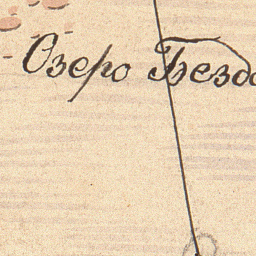 Озеро Бездо